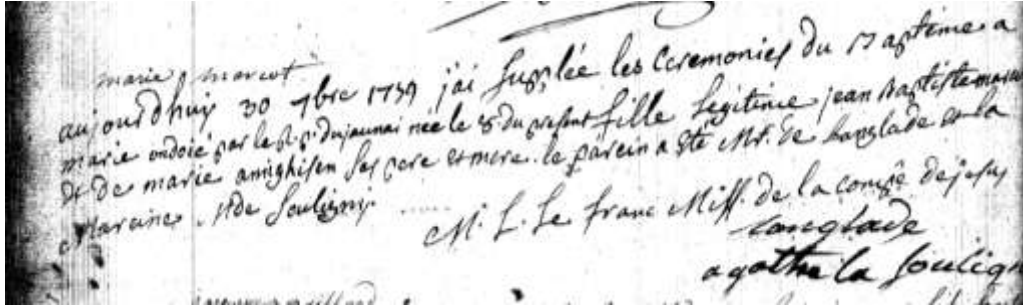 marie marcot
aujourdhuy 30 7bre 1759 j'ai supplée les Ceremonies du Baptême a
marie ondoié par le R. P. Dujaunai née le 8 du present fille legitime jean Baptiste marcot
et de marie amighisen ses pere et mere. le parein a été Mr. de Langlade et la
Mareine Mde Souligny.
M. L. Le franc Miss. de la compe de jesus
Langlade
agathe la Soulign